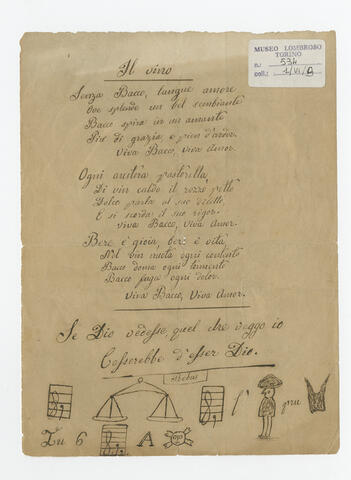 MUSEO LOMBROSO
TORINO
n.: 534
coll.: 1/VI/B
Il vino
Senza Bacco, langue amore
dove splende un bel sembiante
Bacco spira in un amante
Più di grazia, e più d'ardor.
Viva Bacco, viva Amor.
Ogni austera pastorella,
Di vin caldo il rozzo petto
Dolce parla al suo diletto
E si scorda il suo rigor.
Viva Bacco, Viva Amor.
Bere è gioia, bere è vita,
Nel vin nuota ogni contento
Bacco doma ogni tormento
Bacco fuga ogni dolor.
Viva Bacco, Viva Amor.
Se Dio vedesse, quel che veggo io
Cesserebbe d'esser Dio.
Rebus
l'
pru
Tu 6
A